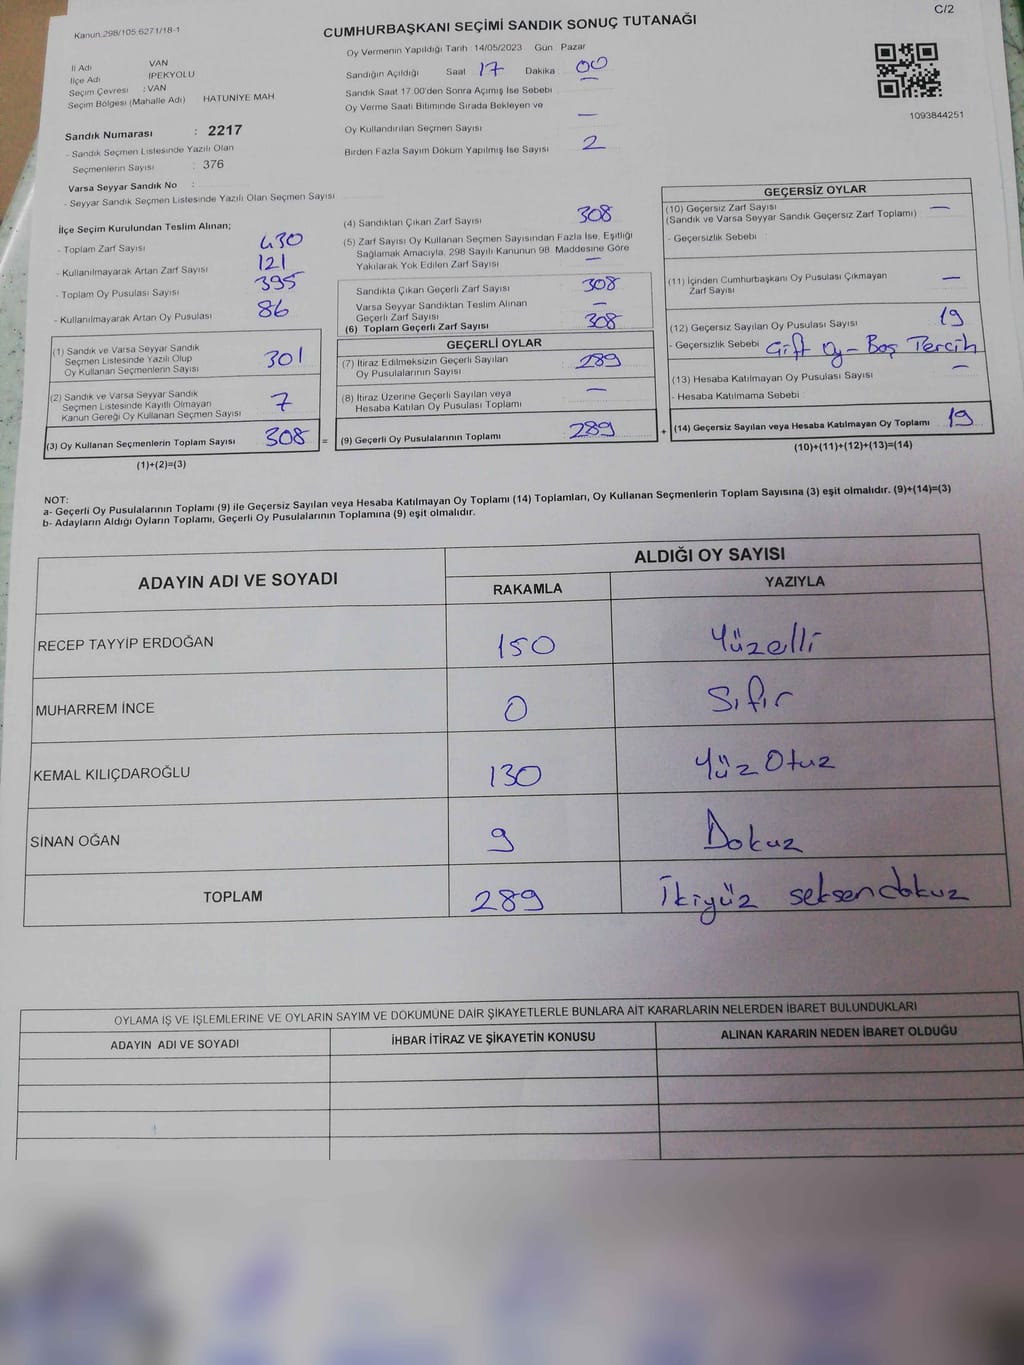 C/2
Kanun.298/105,6271/18-1
CUMHURBAŞKANI SEÇİMİ SANDIK SONUÇ TUTANAĞI
İl Adı VAN
İlçe Adı İPEKYOLU
Seçim Çevresi : VAN
Seçim Bölgesi (Mahalle Adı) HATUNİYE MAH
Oy Vermenin Yapıldığı Tarih : 14/05/2023 Gün : Pazar
Sandığın Açıldığı Saat 17 Dakika 00
Sandık Saat 17.00'den Sonra Açımış İse Sebebi
Oy Verme Saati Bitiminde Sırada Bekleyen ve
Oy Kullandırılan Seçmen Sayısı —
Birden Fazla Sayım Döküm Yapılmış İse Sayısı 2
1093844251
Sandık Numarası : 2217
- Sandık Seçmen Listesinde Yazılı Olan
Seçmenlerin Sayısı : 376
Varsa Seyyar Sandık No :
- Seyyar Sandık Seçmen Listesinde Yazılı Olan Seçmen Sayısı
İlçe Seçim Kurulundan Teslim Alınan;
- Toplam Zarf Sayısı 430
- Kullanılmayarak Artan Zarf Sayısı 121
- Toplam Oy Pusulası Sayısı 395
- Kullanılmayarak Artan Oy Pusulası 86
(1) Sandık ve Varsa Seyyar Sandık
Seçmen Listesinde Yazılı Olup
Oy Kullanan Seçmenlerin Sayısı 301
(2) Sandık ve Varsa Seyyar Sandık
Seçmen Listesinde Kayıtlı Olmayan
Kanun Gereği Oy Kullanan Seçmen Sayısı 7
(3) Oy Kullanan Seçmenlerin Toplam Sayısı 308 =
(1)+(2)=(3)
(4) Sandıktan Çıkan Zarf Sayısı 308
(5) Zarf Sayısı Oy Kullanan Seçmen Sayısından Fazla İse, Eşitliği
Sağlamak Amacıyla, 298 Sayılı Kanunun 98. Maddesine Göre
Yakılarak Yok Edilen Zarf Sayısı —
Sandıkta Çıkan Geçerli Zarf Sayısı 308
Varsa Seyyar Sandıktan Teslim Alınan
Geçerli Zarf Sayısı —
(6) Toplam Geçerli Zarf Sayısı 308
GEÇERLİ OYLAR
(7) İtiraz Edilmeksizin Geçerli Sayılan
Oy Pusulalarının Sayısı 289
(8) İtiraz Üzerine Geçerli Sayılan veya
Hesaba Katılan Oy Pusulası Toplamı —
(9) Geçerli Oy Pusulalarının Toplamı 289 +
GEÇERSİZ OYLAR
(10) Geçersiz Zarf Sayısı —
(Sandık ve Varsa Seyyar Sandık Geçersiz Zarf Toplamı)
- Geçersizlik Sebebi :
(11) İçinden Cumhurbaşkanı Oy Pusulası Çıkmayan —
Zarf Sayısı
(12) Geçersiz Sayılan Oy Pusulası Sayısı 19
- Geçersizlik Sebebi Çift Oy - Boş Tercih
(13) Hesaba Katılmayan Oy Pusulası Sayısı —
- Hesaba Katılmama Sebebi
(14) Geçersiz Sayılan veya Hesaba Katılmayan Oy Toplamı 19
(10)+(11)+(12)+(13)=(14)
NOT:
a- Geçerli Oy Pusulalarının Toplamı (9) ile Geçersiz Sayılan veya Hesaba Katılmayan Oy Toplamı (14) Toplamları, Oy Kullanan Seçmenlerin Toplam Sayısına (3) eşit olmalıdır. (9)+(14)=(3)
b- Adayların Aldığı Oyların Toplamı, Geçerli Oy Pusulalarının Toplamına (9) eşit olmalıdır.
ADAYIN ADI VE SOYADI
ALDIĞI OY SAYISI
RAKAMLA YAZIYLA
RECEP TAYYİP ERDOĞAN 150 Yüzelli
MUHARREM İNCE 0 Sıfır
KEMAL KILIÇDAROĞLU 130 Yüz Otuz
SİNAN OĞAN 9 Dokuz
TOPLAM 289 İkiyüz seksendokuz
OYLAMA İŞ VE İŞLEMLERİNE VE OYLARIN SAYIM VE DÖKÜMÜNE DAİR ŞİKAYETLERLE BUNLARA AİT KARARLARIN NELERDEN İBARET BULUNDUKLARI
ADAYIN ADI VE SOYADI İHBAR İTİRAZ VE ŞİKAYETİN KONUSU ALINAN KARARIN NEDEN İBARET OLDUĞU